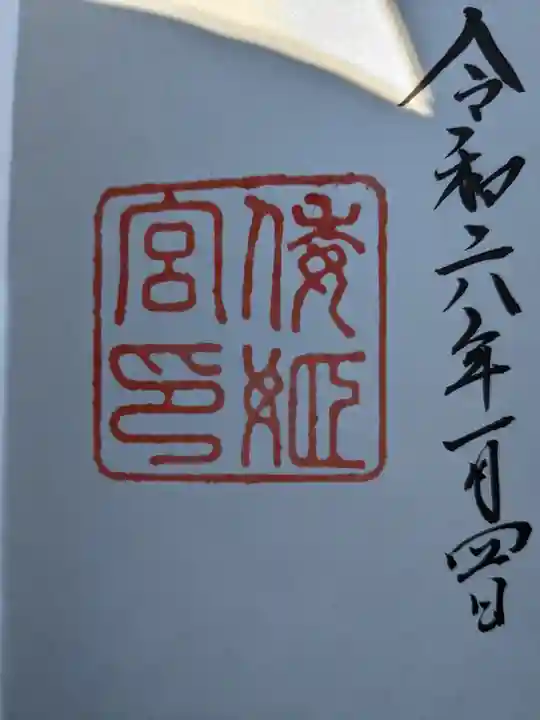 令和六年一月四日
倭姫
宮印